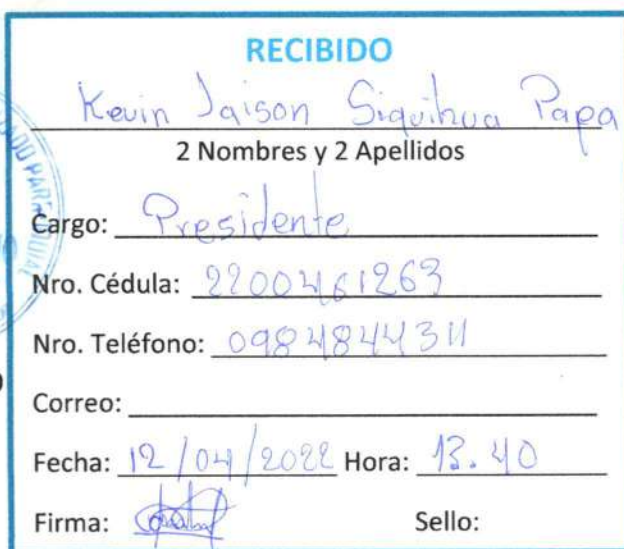 RECIBIDO
Kevin Jaison Siquihua Papa
2 Nombres y 2 Apellidos
Cargo: Presidente
Nro. Cédula: 2200461263
Nro. Teléfono: 0984844311
Correo:
Fecha: 12/04/2022 Hora: 13.40
Firma: Sello: